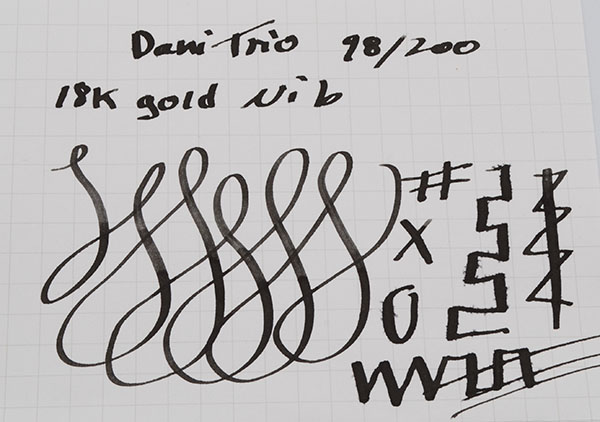 Dani Trio 98/200
18K gold nib
#
X
O